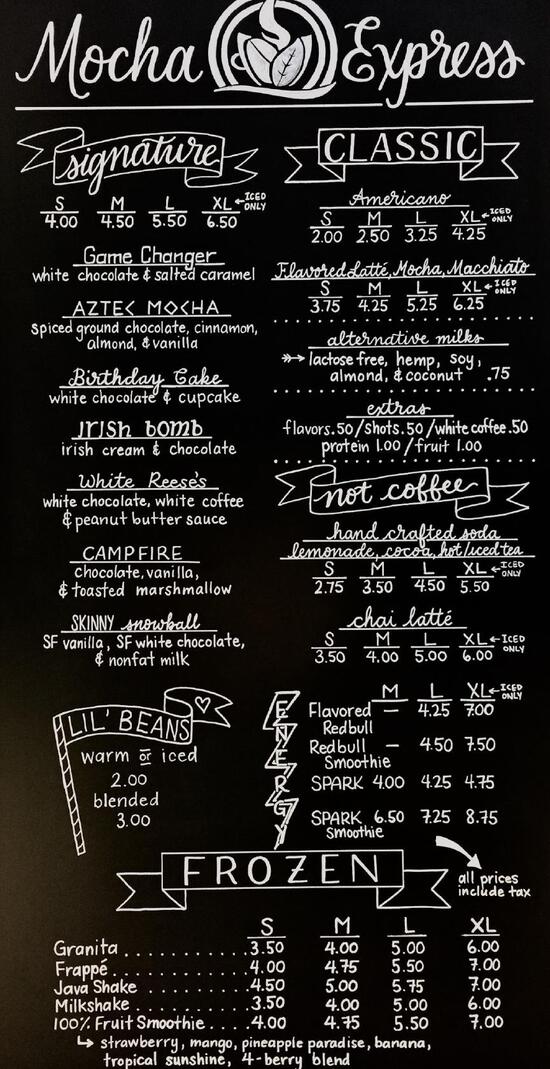 Mocha Express
signature
S M L XL ←ICED ONLY
4.00 4.50 5.50 6.50
Game Changer
white chocolate & salted caramel
AZTEC MOCHA
spiced ground chocolate, cinnamon,
almond, & vanilla
Birthday Cake
white chocolate & cupcake
IRISH bomb
irish cream & chocolate
White Reese's
white chocolate, white coffee
& peanut butter sauce
CAMPFIRE
chocolate, vanilla,
& toasted marshmallow
SKINNY snowball
SF vanilla, SF white chocolate,
& nonfat milk
LIL' BEANS
warm or iced
2.00
blended
3.00
CLASSIC
Americano
S M L XL ←ICED ONLY
2.00 2.50 3.25 4.25
Flavored Latté, Mocha, Macchiato
S M L XL ←ICED ONLY
3.75 4.25 5.25 6.25
alternative milks
lactose free, hemp, soy,
almond, & coconut .75
extras
flavors .50/shots .50/white coffee .50
protein 1.00/fruit 1.00
not coffee
hand crafted soda
lemonade, cocoa, hot/iced tea
S M L XL ←ICED ONLY
2.75 3.50 4.50 5.50
chai latté
S M L XL ←ICED ONLY
3.50 4.00 5.00 6.00
ENERGY
M L XL ←ICED ONLY
Flavored — 4.25 7.00
Redbull
Redbull — 4.50 7.50
Smoothie
SPARK 4.00 4.25 4.75
SPARK 6.50 7.25 8.75
Smoothie
all prices
include tax
FROZEN
S M L XL
Granita..........3.50 4.00 5.00 6.00
Frappé..........4.00 4.75 5.50 7.00
Java Shake........4.50 5.00 5.75 7.00
Milkshake........3.50 4.00 5.00 6.00
100% Fruit Smoothie....4.00 4.75 5.50 7.00
↳ strawberry, mango, pineapple paradise, banana,
tropical sunshine, 4-berry blend